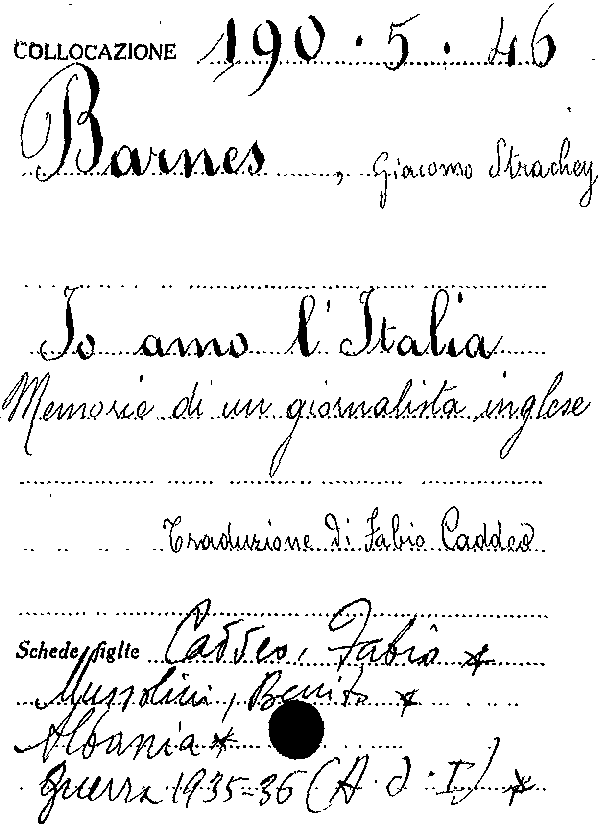 COLLOCAZIONE 190.5.46
Barnes, Giacomo Strachey
Io amo l'Italia
Memorie di un giornalista inglese
Traduzione di Fabio Caddeo
Schede figlie Caddeo, Fabio *
Mussolini, Benito *
Albania *
Guerra 1935-36 (A.O.I.) *